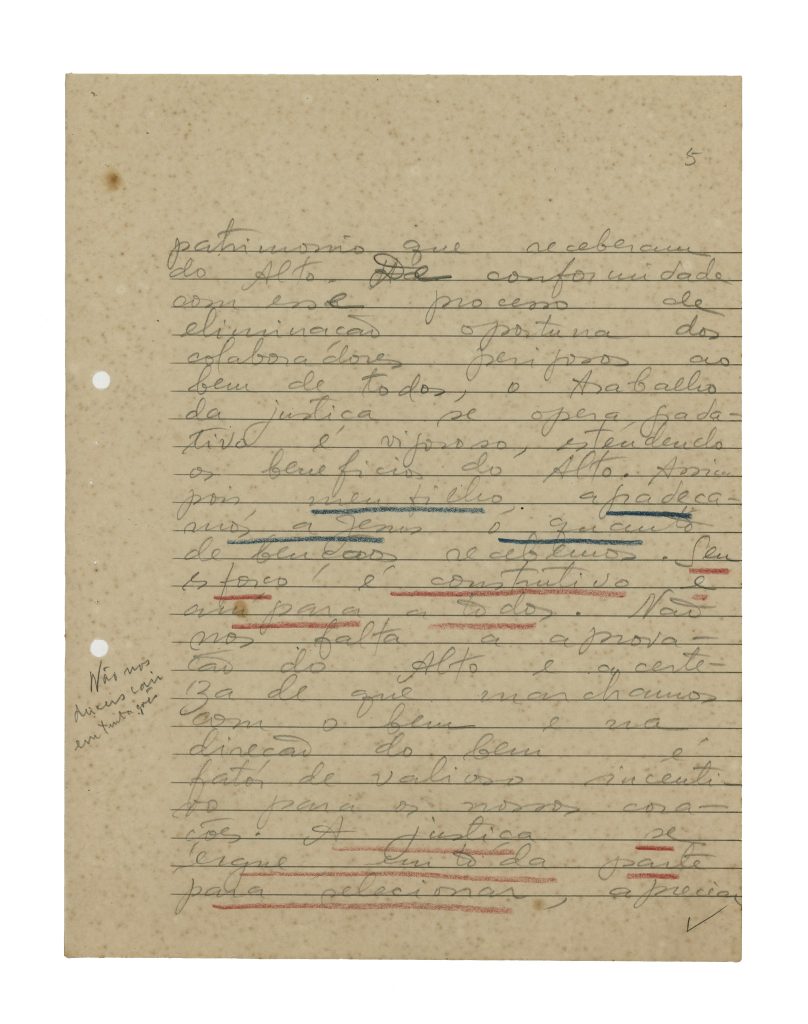 5
patrimonio que receberam
do Alto. De conformidade
com esse processo de
eliminação oportuna dos
colaboradores perigosos ao
bem de todos, o trabalho
da justiça se opera grada-
tivo é vigoroso, estendendo
os beneficios do Alto. Assim
pois meu filho, agradeça-
mos a Jesus o quanto
de bençãos recebemos. Seu
esforço é construtivo e
ampara a todos. Não
nos falta a aprova-
ção do Alto e a certe-
za de que marchamos
com o bem e na
direção do bem é
fatôr de valioso incenti-
vo para os nossos cora-
ções. A justiça se
ergue em tôda parte
para selecionar, apreciar
Não nos
deixeis cair
em tentação